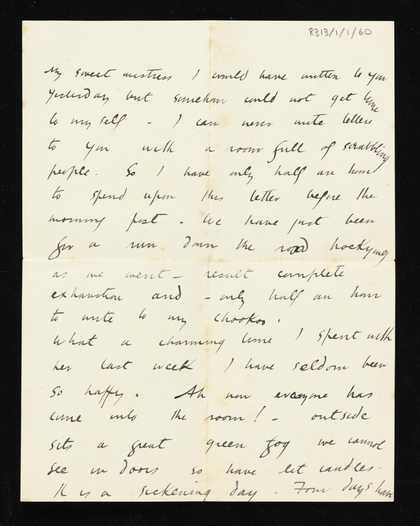 8313/1/1/60
My sweet mistress I would have written to you
yesterday but somehow could not get time
to myself - I can never write letters
to you with a room full of scrabbling
people. So I have only half an hour
to spend upon this letter before the
morning post - We have just been
for a run down the road hockeying
as we went - result complete
exhaustion and - only half an hour
to write to my chooks.
What a charming time I spent with
her last week I have seldom been
so happy. Ah now everyone has
come into the room! - outside
sits a great green fog we cannot
see in doors so have lit candles -
It is a sickening day. Four days have